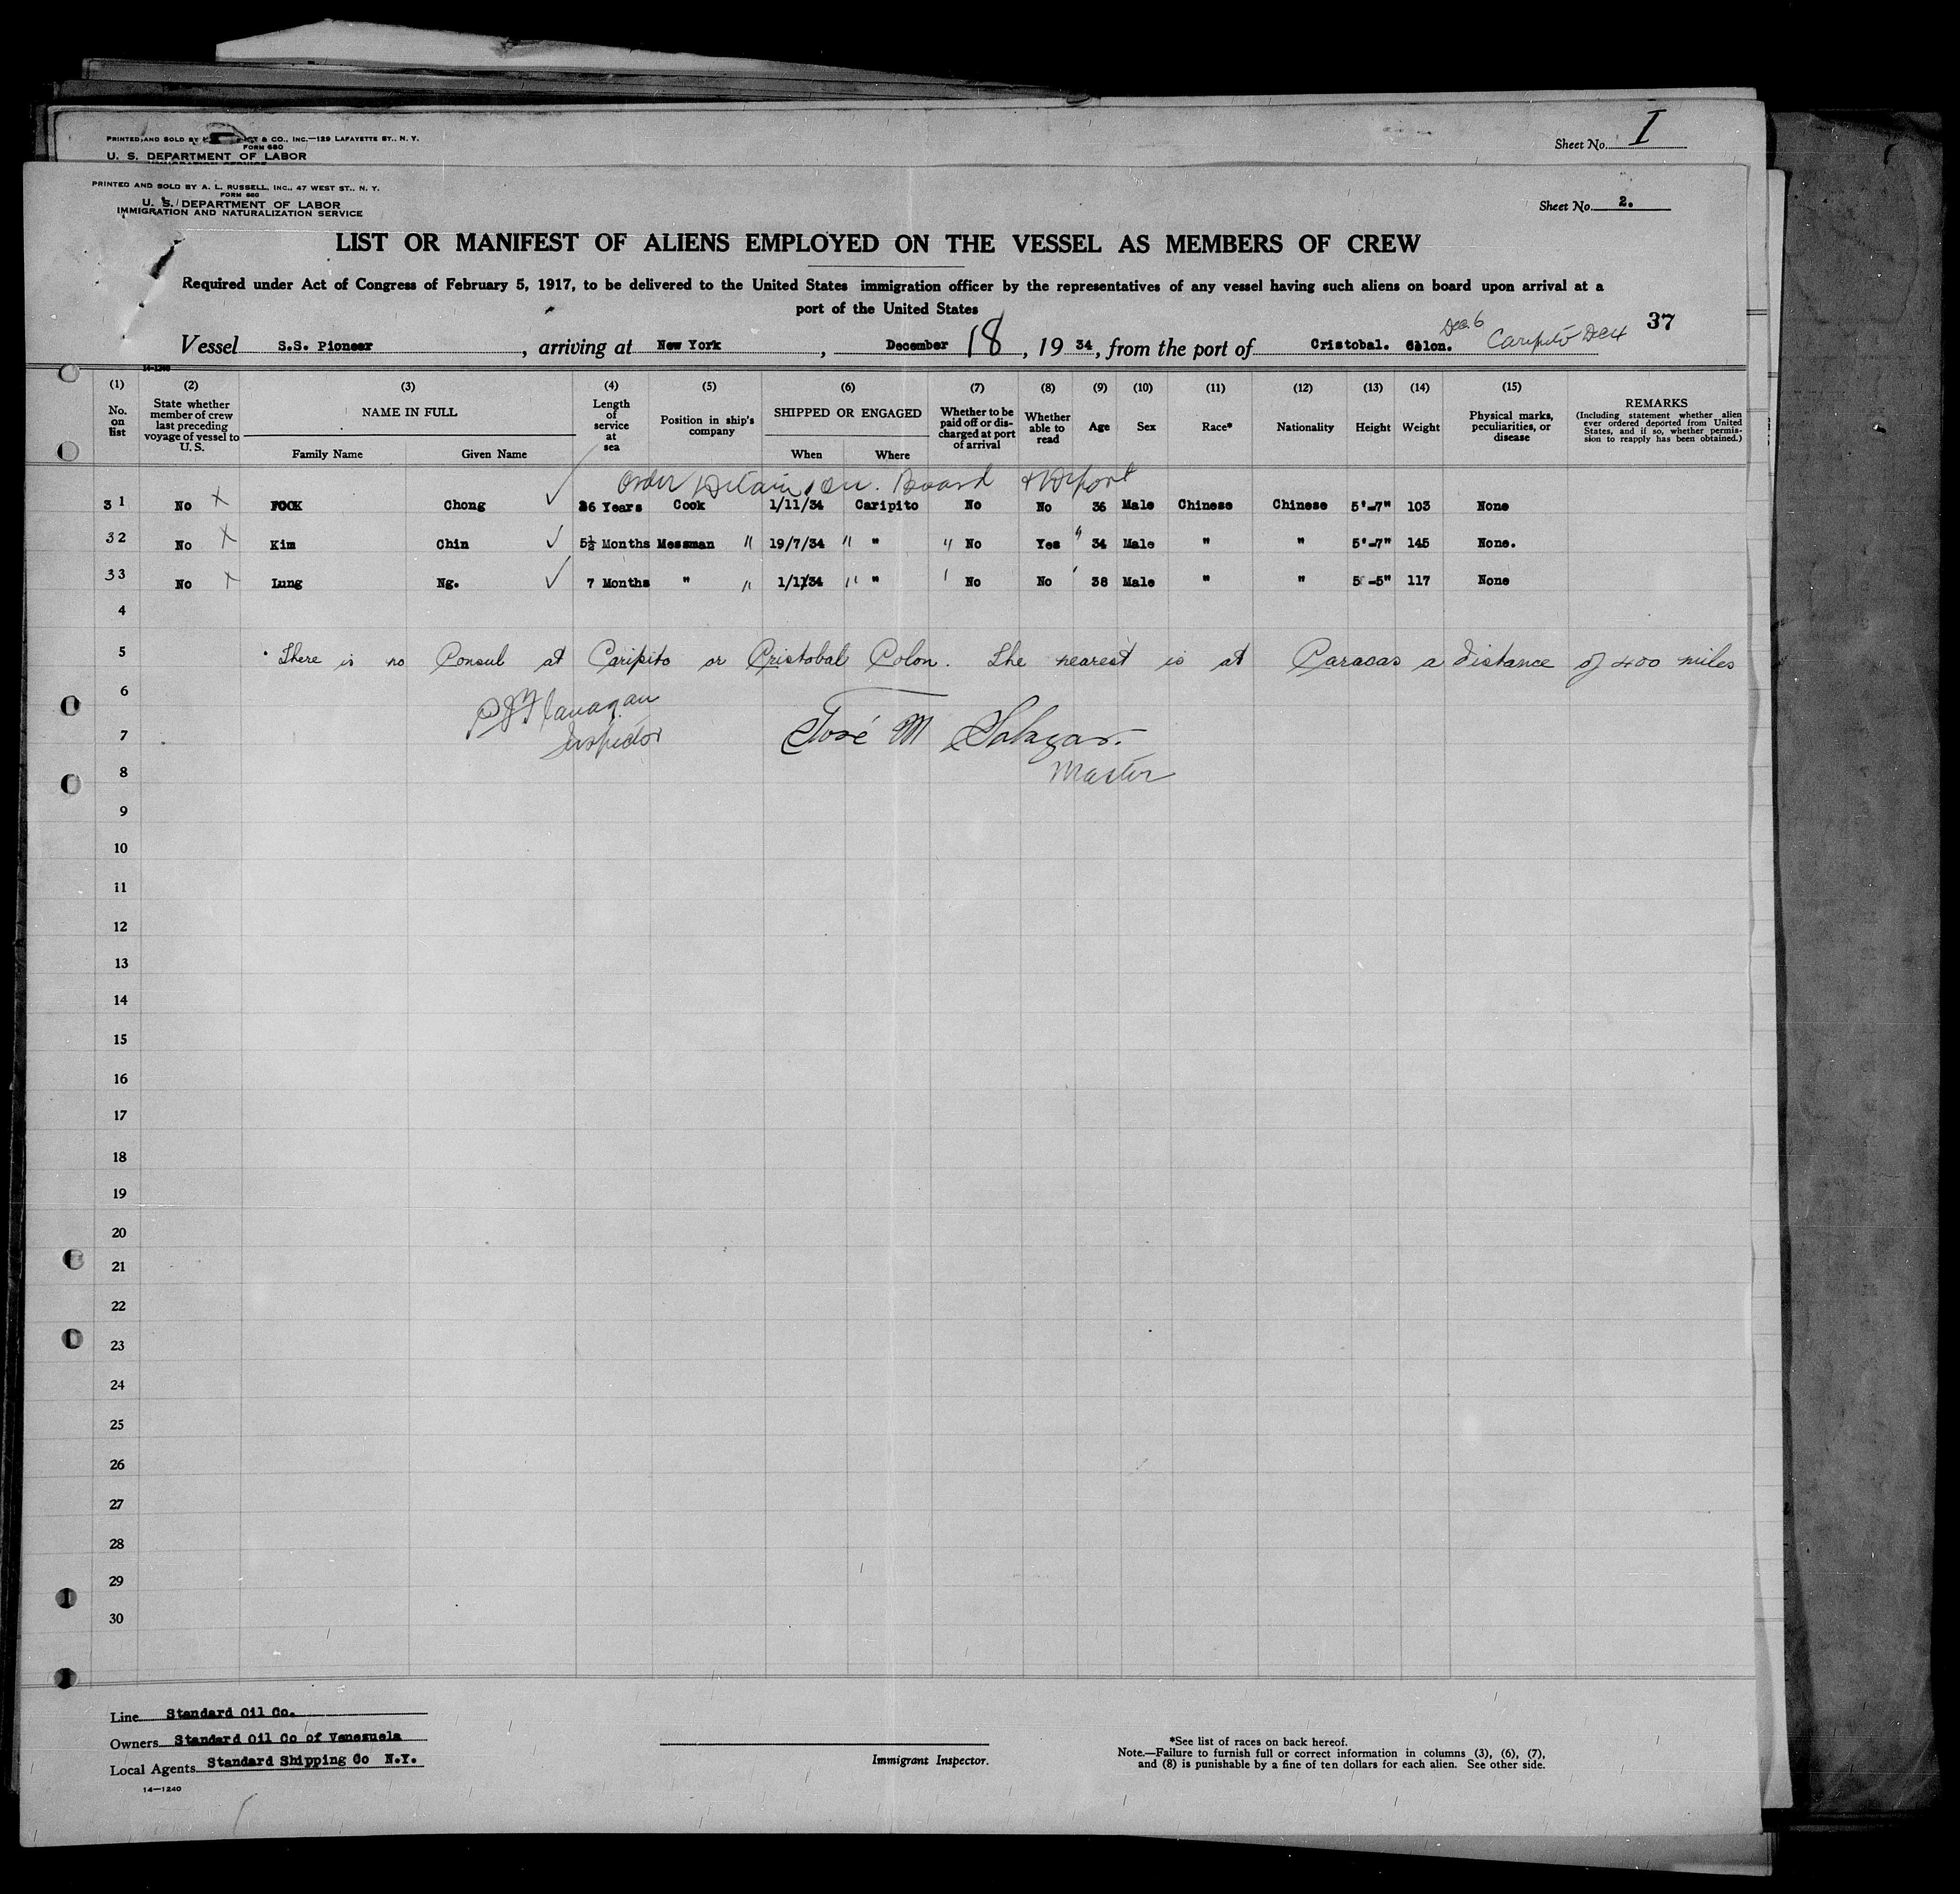 PRINTED AND SOLD BY & CO., INC.—129 LAFAYETTE ST., N. Y.
FORM 680
U. S. DEPARTMENT OF LABOR
Sheet No. I
PRINTED AND SOLD BY A. L. RUSSELL, INC., 47 WEST ST., N. Y.
FORM 680
U. S. DEPARTMENT OF LABOR
IMMIGRATION AND NATURALIZATION SERVICE
Sheet No. 2.
LIST OR MANIFEST OF ALIENS EMPLOYED ON THE VESSEL AS MEMBERS OF CREW
Required under Act of Congress of February 5, 1917, to be delivered to the United States immigration officer by the representatives of any vessel having such aliens on board upon arrival at a
port of the United States
37
Dec. 6
Vessel S.S. Pioneer, arriving at New York, December 18, 1934, from the port of Cristobal. Colon. Caripito Dec 4
14-1240
(1) No. on list
(2) State whether member of crew last preceding voyage of vessel to U. S.
(3) NAME IN FULL Family Name Given Name
(4) Length of service at sea
(5) Position in ship's company
(6) SHIPPED OR ENGAGED When Where
(7) Whether to be paid off or discharged at port of arrival
(8) Whether able to read
(9) Age
(10) Sex
(11) Race*
(12) Nationality
(13) Height
(14) Weight
(15) Physical marks, peculiarities, or disease
REMARKS (Including statement whether alien ever ordered deported from United States, and if so, whether permission to reapply has been obtained.)
Order Detain on Board & Deport
31 No X FOOK Chong ✓ 26 Years Cook 1/11/34 Caripito No No 36 Male Chinese Chinese 5'-7" 103 None
32 No X Kim Chin ✓ 5½ Months Messman " 19/7/34 " " " No Yes " 34 Male " " 5'-7" 145 None.
33 No X Lung Ng. ✓ 7 Months " " 1/11/34 " " No No 38 Male " " 5 -5" 117 None
4
5 There is no Consul at Caripito or Cristobal Colon. The nearest is at Caracas a distance of 400 miles
6 P J Flanagan
7 Inspector José M Salazar.
8 Master
9
10
11
12
13
14
15
16
17
18
19
20
21
22
23
24
25
26
27
28
29
30
Line Standard Oil Co.
Owners Standard Oil Co of Venezuela
Local Agents Standard Shipping Co N.Y.
14—1240
Immigrant Inspector.
*See list of races on back hereof.
Note.—Failure to furnish full or correct information in columns (3), (6), (7),
and (8) is punishable by a fine of ten dollars for each alien. See other side.